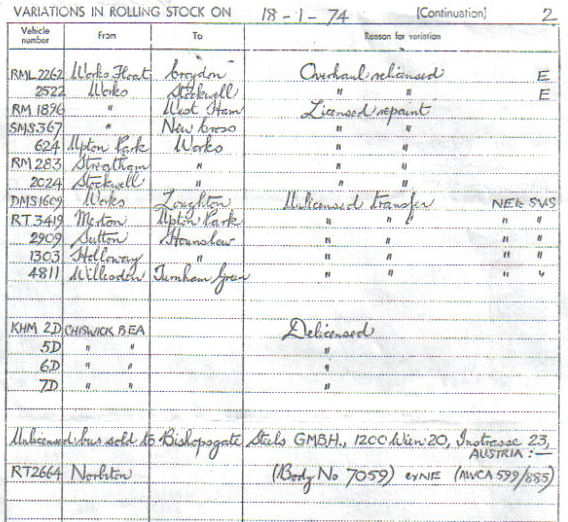 VARIATIONS IN ROLLING STOCK ON 18-1-74 (Continuation) 2
Vehicle number From To Reason for variation
RML 2262 Works Float Croydon Overhaul relicensed E
2522 Works Stockwell " " E
RM 1896 " West Ham Licensed repaint
SMS 367 " New Cross " "
624 Upton Park Works " "
RM 283 Streatham " " "
2024 Stockwell " " "
DMS 1609 Works Loughton Unlicensed transfer NEW SVS
RT 3419 Merton Upton Park " " " "
2909 Sutton Hounslow " " " "
1303 Holloway " " " " "
4811 Willesden Turnham Green " " " "
KHM 2D CHISWICK BEA Delicensed
5D " " "
6D " " "
7D " " "
Unlicensed bus sold to Bishopsgate Steels GMBH., 1200 Wien 20, Instrasse 23,
AUSTRIA :—
RT2664 Norbiton (Body No 7059) (AWCA 599/885)